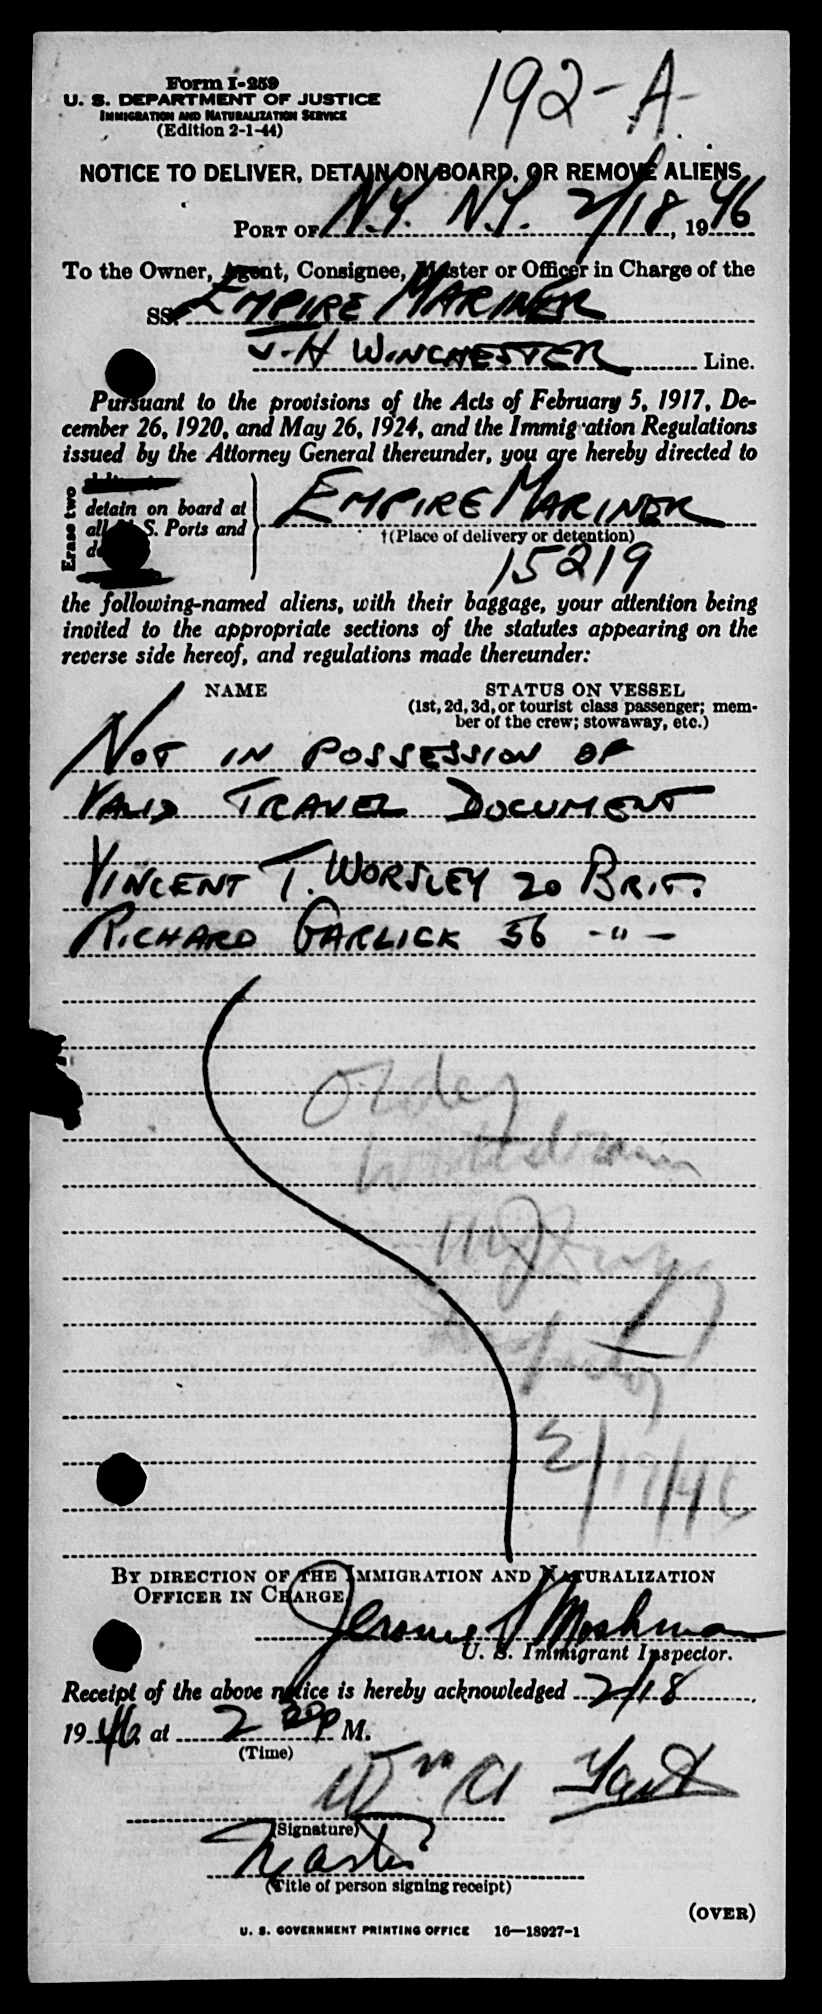 Form I-259
U. S. DEPARTMENT OF JUSTICE
IMMIGRATION AND NATURALIZATION SERVICE
(Edition 2-1-44)
192-A
NOTICE TO DELIVER, DETAIN ON BOARD, OR REMOVE ALIENS
PORT OF N.Y. N.Y. 2/18, 1946
To the Owner, Agent, Consignee, Master or Officer in Charge of the
SS. EMPIRE MARINER
J-H WINCHESTER Line.
Pursuant to the provisions of the Acts of February 5, 1917, De-
cember 26, 1920, and May 26, 1924, and the Immigration Regulations
issued by the Attorney General thereunder, you are hereby directed to
Erase two
detain on board at
all U. S. Ports and
EMPIRE MARINER
†(Place of delivery or detention)
15219
the following-named aliens, with their baggage, your attention being
invited to the appropriate sections of the statutes appearing on the
reverse side hereof, and regulations made thereunder:
NAME STATUS ON VESSEL
(1st, 2d, 3d, or tourist class passenger; mem-
ber of the crew; stowaway, etc.)
NOT IN POSSESSION OF
VALID TRAVEL DOCUMENT
VINCENT T. WORSLEY 20 BRIT.
RICHARD GARLICK 56 -"-
Order
withdrawn
Inspector
2/19/46
BY DIRECTION OF THE IMMIGRATION AND NATURALIZATION
OFFICER IN CHARGE
Jerome Moshman
U. S. Immigrant Inspector.
Receipt of the above notice is hereby acknowledged 2/18,
1946 at 2 30 P M.
(Time)
Wm A
(Signature)
Master
(Title of person signing receipt)
(OVER)
U. S. GOVERNMENT PRINTING OFFICE 16—18927-1